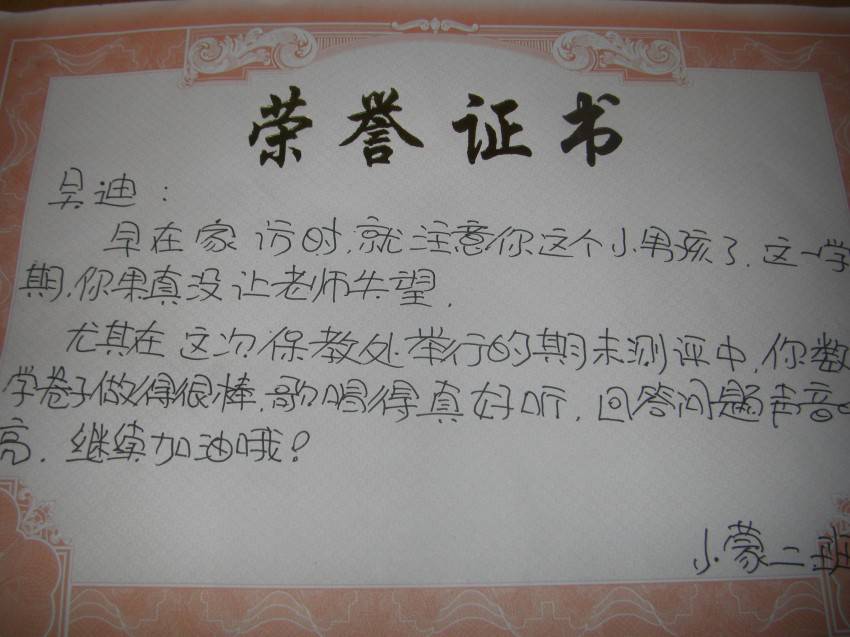 荣誉证书
吴迪：
早在家访时,就注意你这个小男孩了,这一学
期,你果真没让老师失望.
尤其在这次保教处举行的期末测评中,你数
学卷子做得很棒,歌唱得真好听,回答问题声音
亮.继续加油哦!
小蒙二班